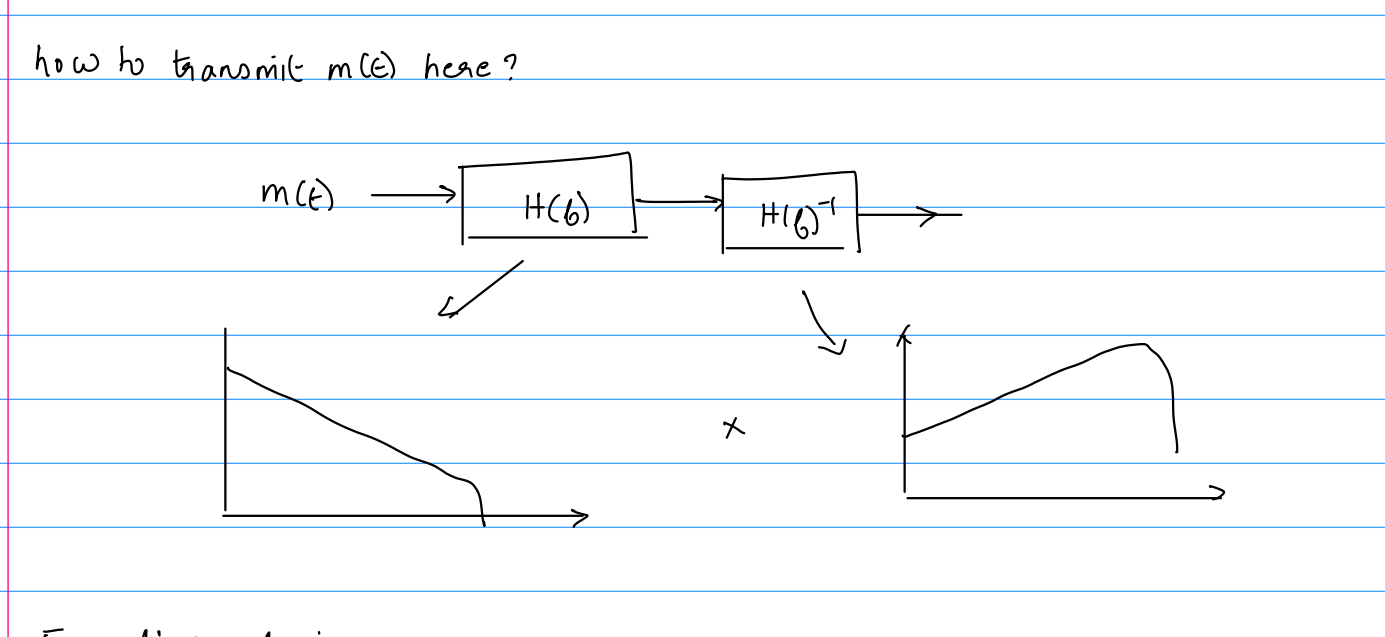 how to transmit m(t) here?
m(t)
H(f)
H(f)⁻¹
x